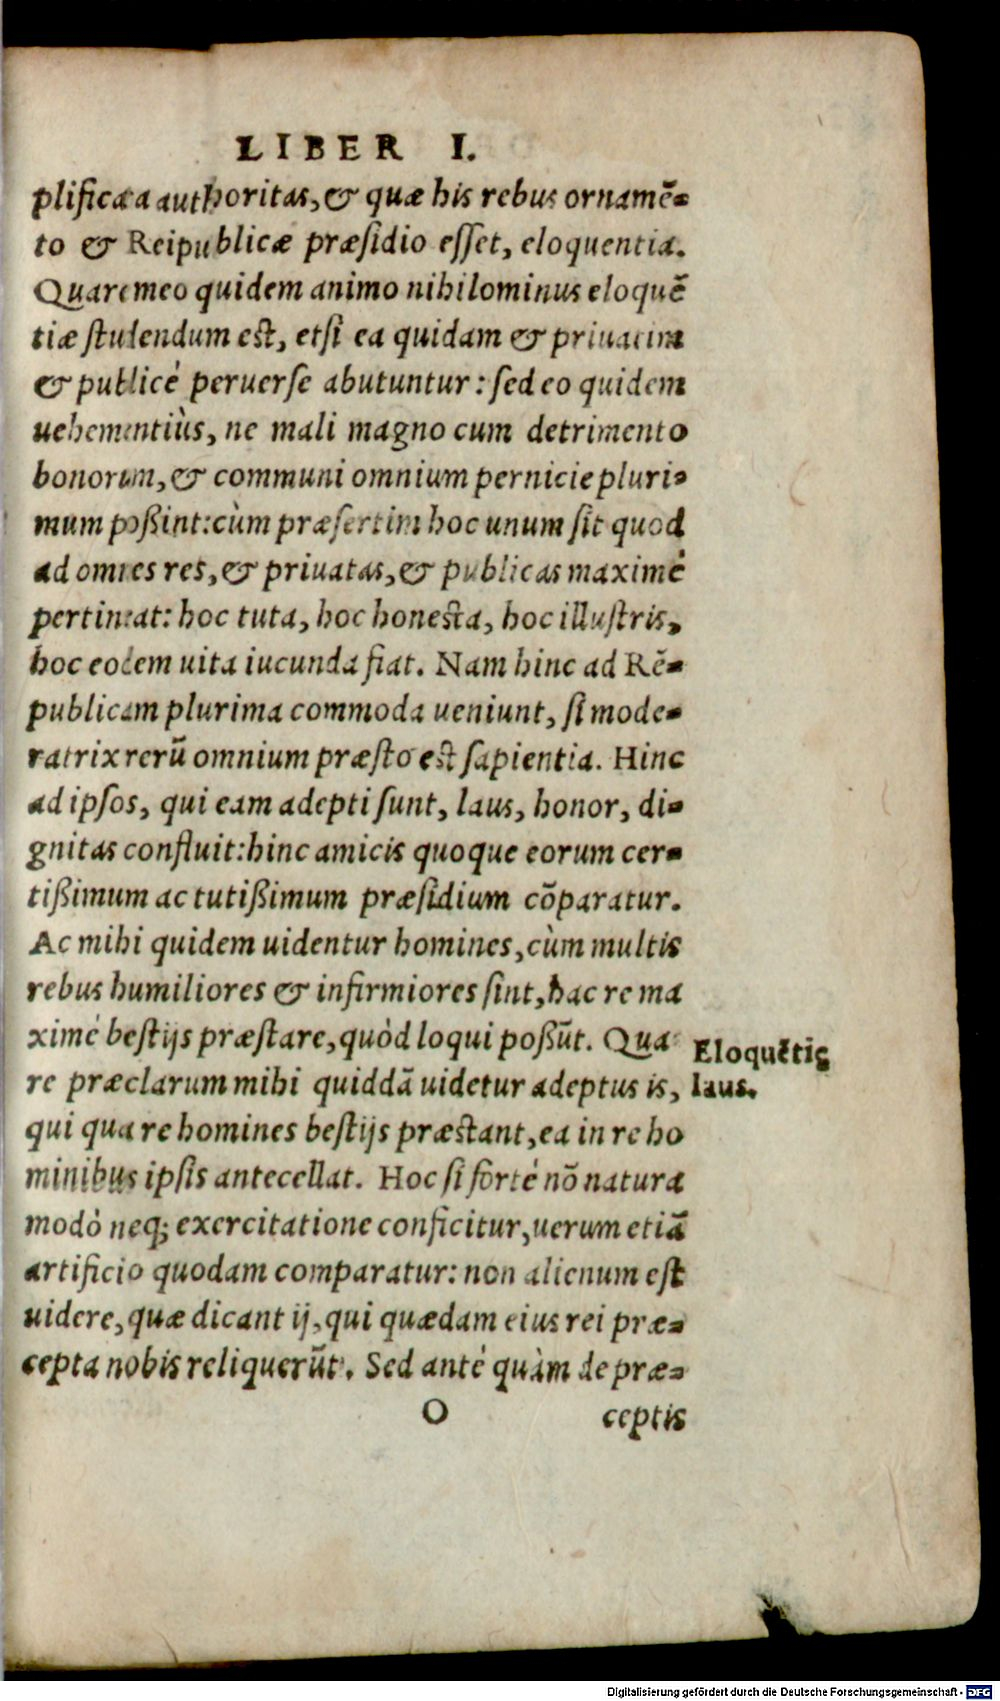 LIBER I.
plificata authoritas, & quæ his rebus ornamē-
to & Reipublicæ præsidio esset, eloquentia.
Quare meo quidem animo nihilominus eloquē
tiæ studendum est, etsi ea quidam & priuatim
& publicè peruerse abutuntur: sed eo quidem
uehementiùs, ne mali magno cum detrimento
bonorum, & communi omnium pernicie pluri-
mum poßint: cùm præsertim hoc unum sit quod
ad omnes res, & priuatas, & publicas maximè
pertineat: hoc tuta, hoc honesta, hoc illustris,
hoc eodem uita iucunda fiat. Nam hinc ad Rē-
publicam plurima commoda ueniunt, si mode-
ratrix rerū omnium præsto est sapientia. Hinc
ad ipsos, qui eam adepti sunt, laus, honor, di-
gnitas confluit: hinc amicis quoque eorum cer-
tißimum ac tutißimum præsidium cōparatur.
Ac mihi quidem uidentur homines, cùm multis
rebus humiliores & infirmiores sint, hac re ma
ximè bestijs præstare, quòd loqui poßūt. Qua
re præclarum mihi quiddā uidetur adeptus is,
qui qua re homines bestijs præstant, ea in re ho
minibus ipsis antecellat. Hoc si fortè nō natura
modò neq; exercitatione conficitur, uerum etiā
artificio quodam comparatur: non alienum est
uidere, quæ dicant ij, qui quædam eius rei præ-
cepta nobis reliquerūt. Sed antè quàm de præ-
O ceptis
Eloquētię
laus.
Digitalisierung gefördert durch die Deutsche Forschungsgemeinschaft - DFG